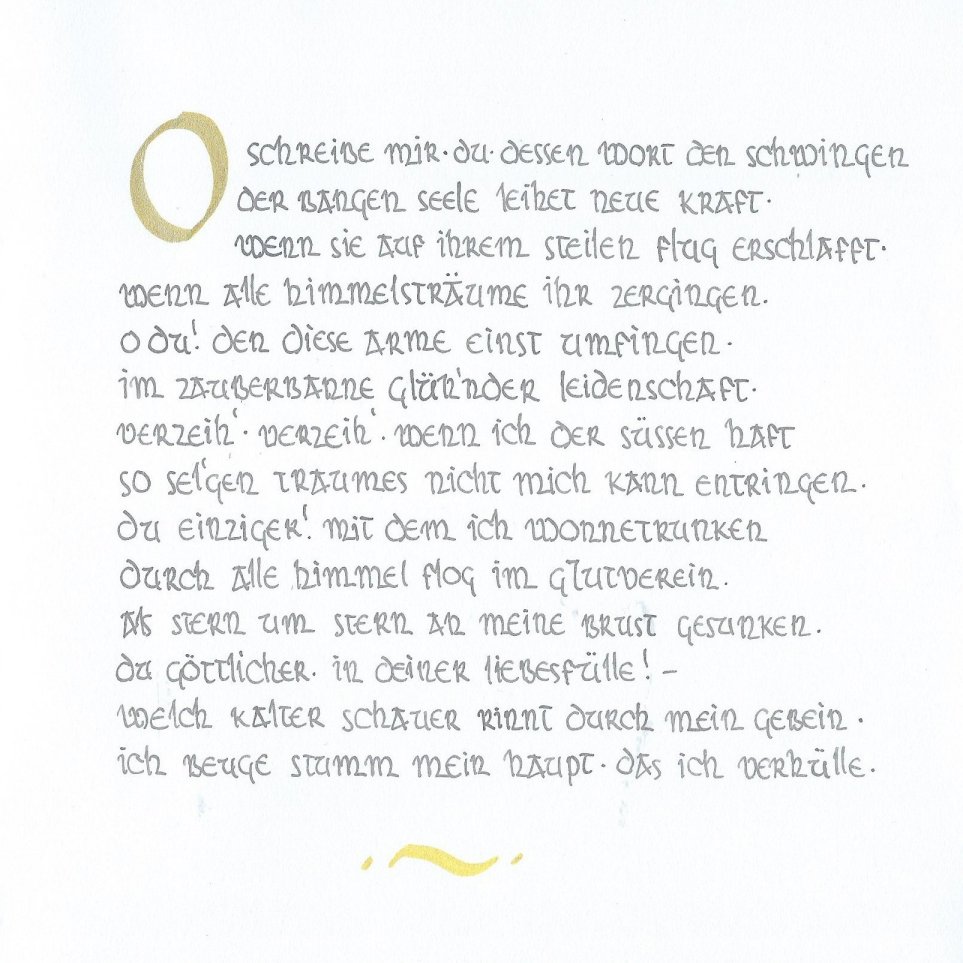 O schreibe mir · du · dessen wort den schwingen
der bangen seele leihet neue kraft ·
wenn sie auf ihrem steilen flug erschlafft ·
wenn alle himmelsträume ihr zergingen.
o du! den diese arme einst umfingen ·
im zauberbanne glüh'nder leidenschaft ·
verzeih' · verzeih' · wenn ich der süssen haft
so sel'gen traumes nicht mich kann entringen.
du einziger! mit dem ich wonnetrunken
durch alle himmel flog im glutverein.
als stern um stern an meine brust gesunken.
du göttlicher. in deiner liebesfülle! –
welch kalter schauer rinnt durch mein gebein ·
ich beuge stumm mein haupt · das ich verhülle.